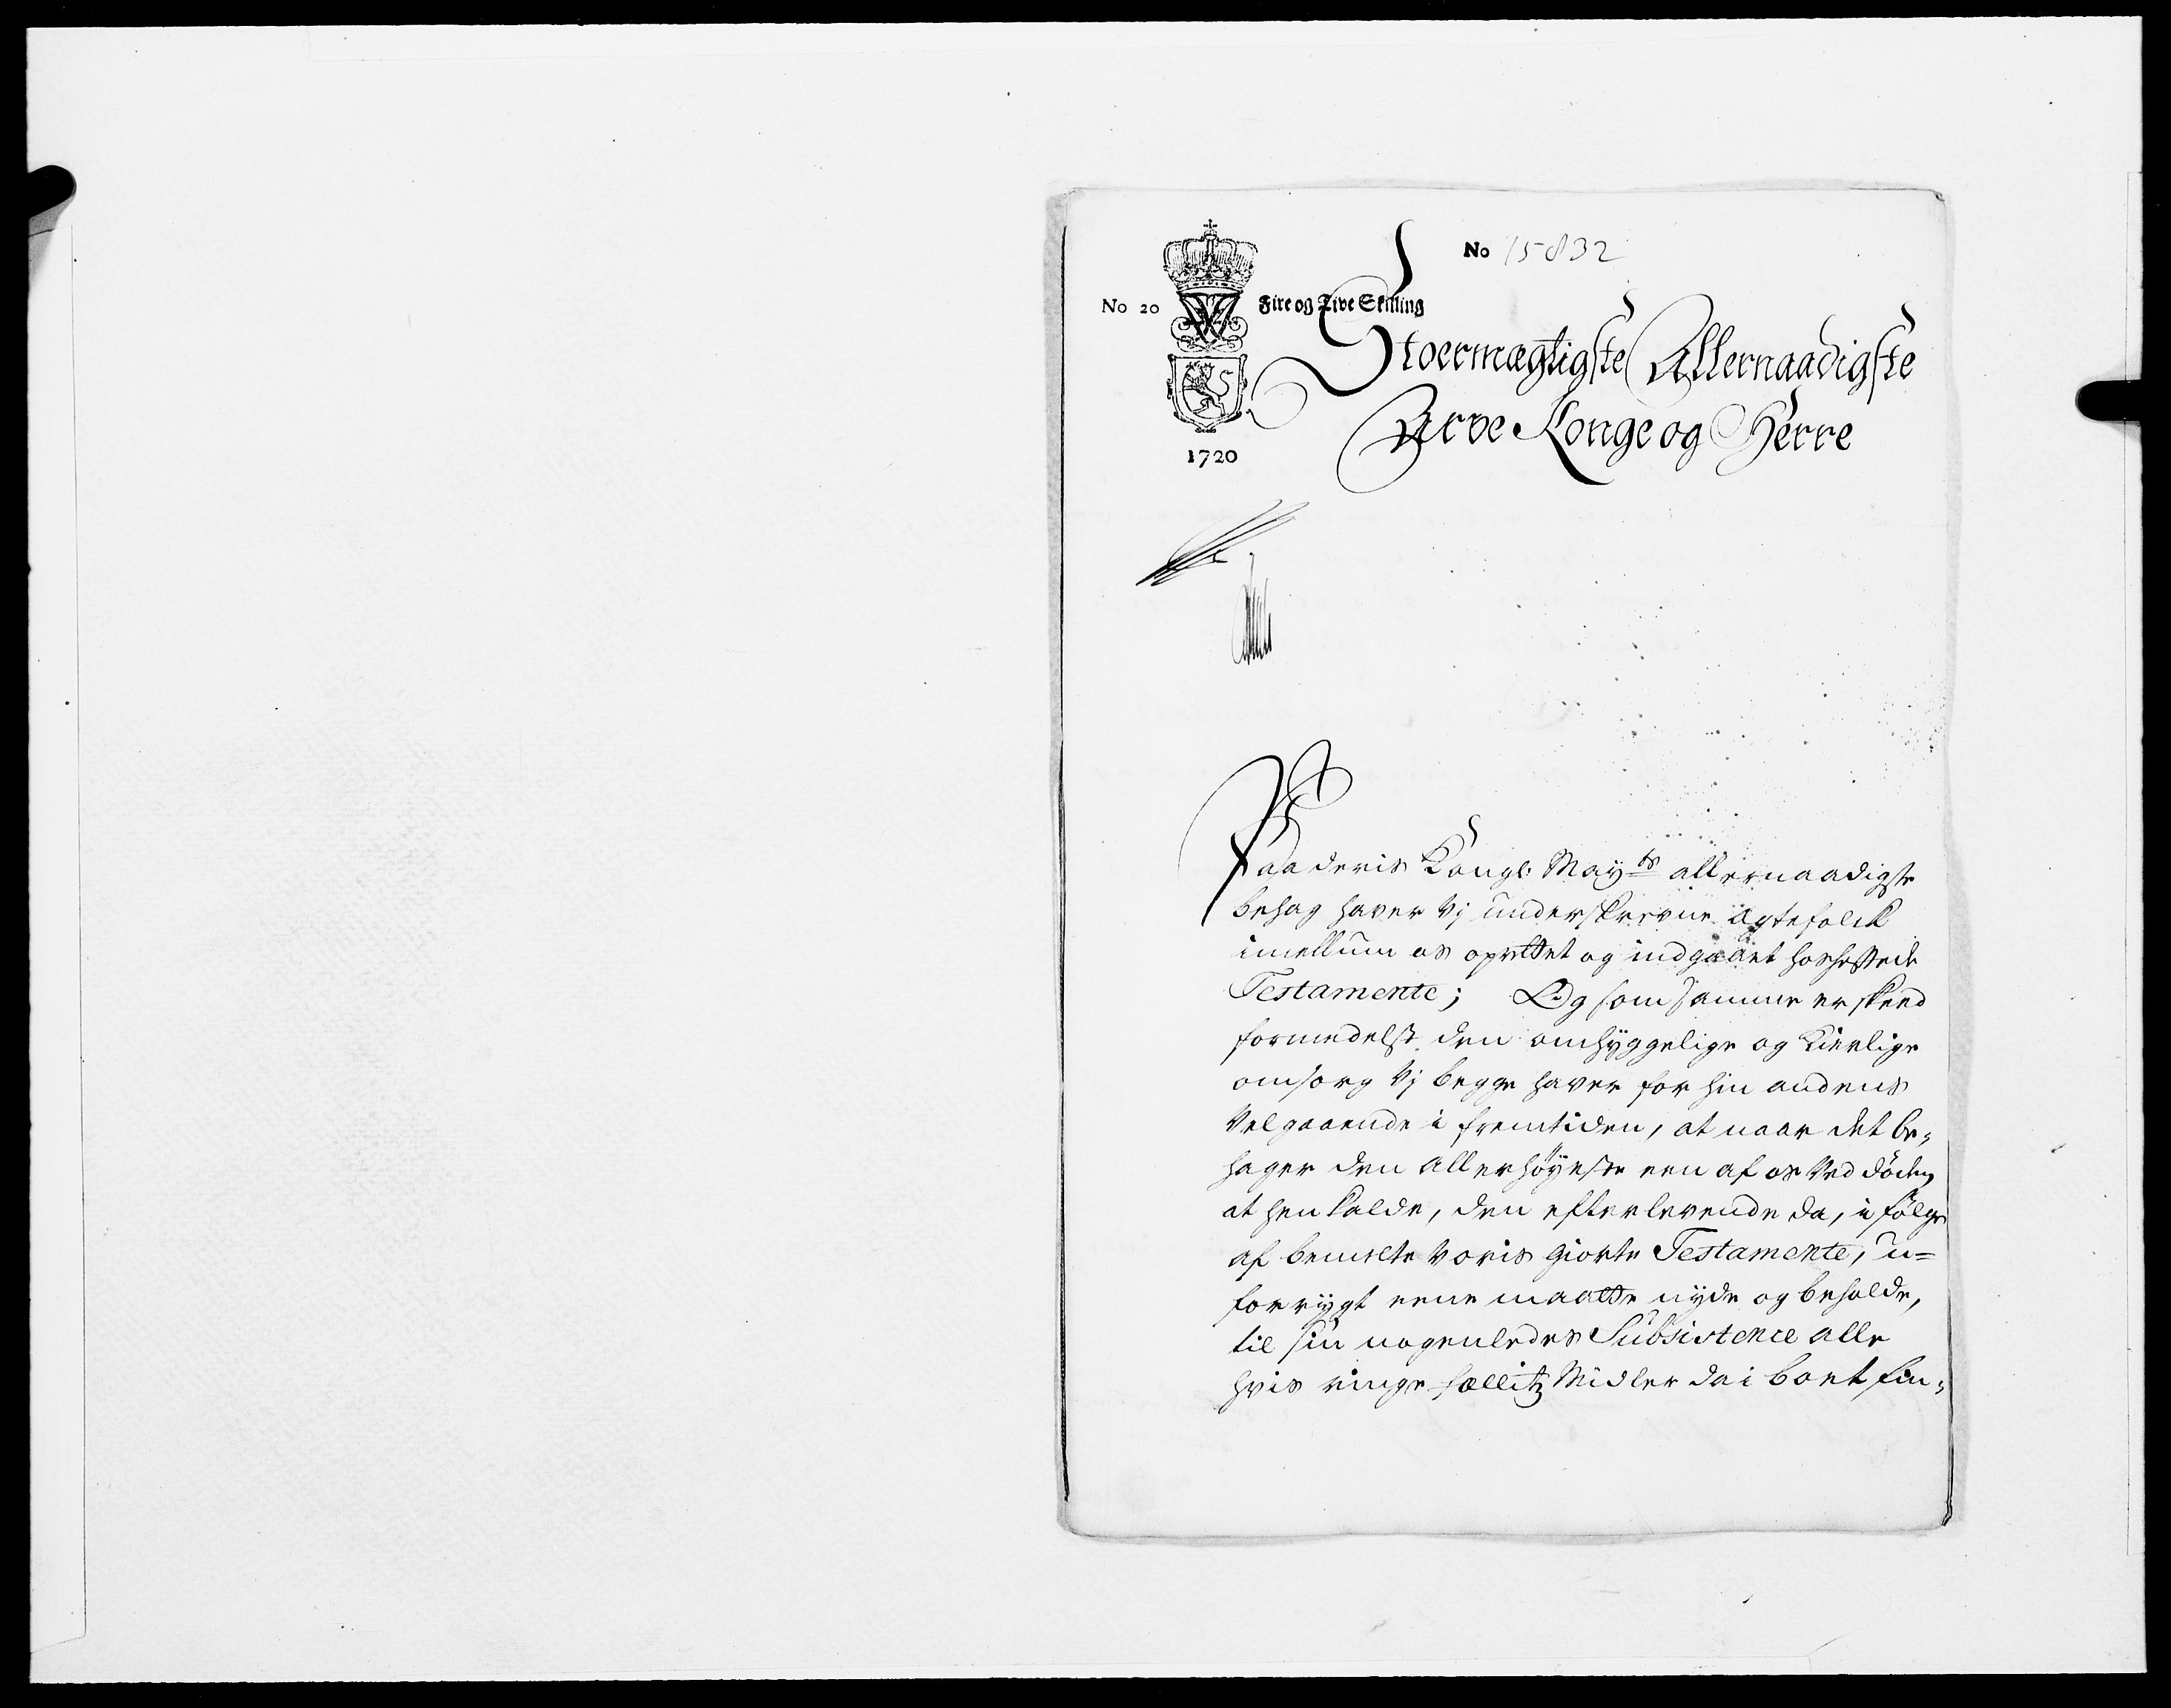 No 15832
No 20 Fire og Tive Skilling
Stoermægtigste Allernaadigste
Arve Konge og Herre
1720
Paa deris Kongl: May ts allernaadigste
behag haver Vj underskrevne Ægtefolck
imellum os oprettet og indgaaet hoshæftede
Testamente; Og som samme er skeed
formedelst den omhyggelige og Kierlige
omsorg Vj begge haver for hin andens
Velgaaende i fremtiden, at naar det be-
hager den allerhøyeste een af os Ved døden
at henkalde, den efterlevende da, i følge
af bemelte Voris giorte Testamente, u=
forrygt eene maatte nyde og beholde,
til sin nogenledes Subsistence alle
hvis ringe fællitz Midler da i boet fin-